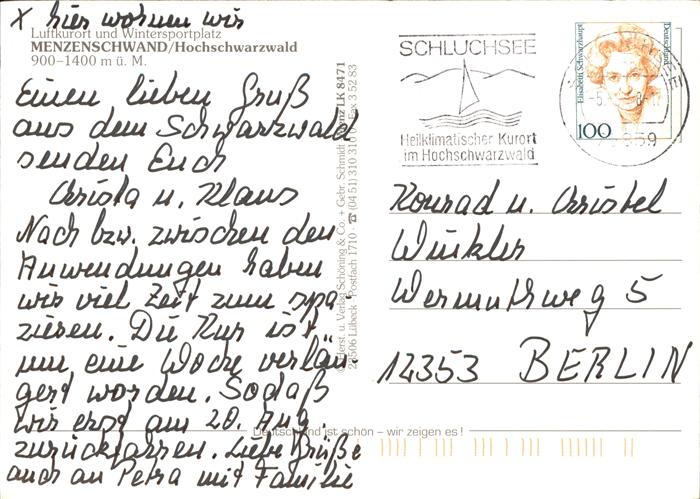 x hier wohnen wir
Luftkurort und Wintersportplatz
MENZENSCHWAND/Hochschwarzwald
900–1400 m ü. M.
Einen lieben Gruß
aus dem Schwarzwald
senden Euch
Christa u. Klaus
Nach bzw. zwischen den
Anwendungen haben
wir viel Zeit zum spa
zieren. Die Kur ist
um eine Woche verlän
gert worden. Sodaß
wir erst am 20. Aug.
zurückfahren. Liebe Grüße
auch an Petra mit Familie
Schöning & Co. + Gebr. Schmidt
LK 8471
Lübeck, Postfach 1710 · ☎ (04 51) 310 310
Fax 3 52 83
Deutschland ist schön – wir zeigen es!
SCHLUCHSEE
Heilklimatischer Kurort
im Hochschwarzwald
Elisabeth Schwarzhaupt
Deutschland
100
Konrad u. Christel
Winkler
Wermuthweg 5
12353 BERLIN